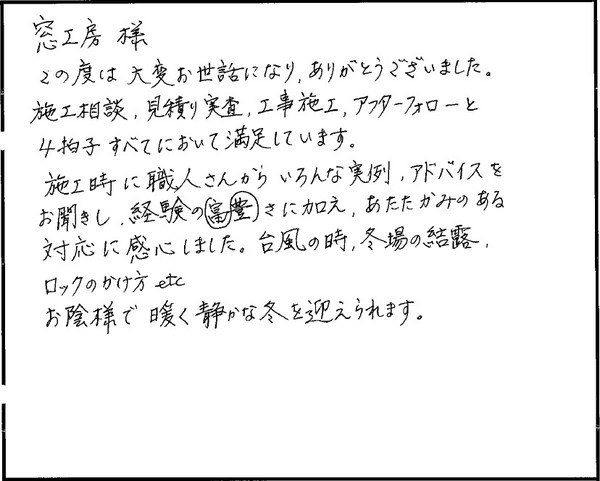 窓工房 様
この度は大変お世話になり,ありがとうございました。
施工相談,見積り実査,工事施工,アフターフォローと
4拍子すべてにおいて満足しています。
施工時に職人さんからいろんな実例,アドバイスを
お聞きし,経験の富豊さに加え,あたたかみのある
対応に感心しました。台風の時,冬場の結露,
ロックのかけ方etc
お陰様で暖く静かな冬を迎えられます。